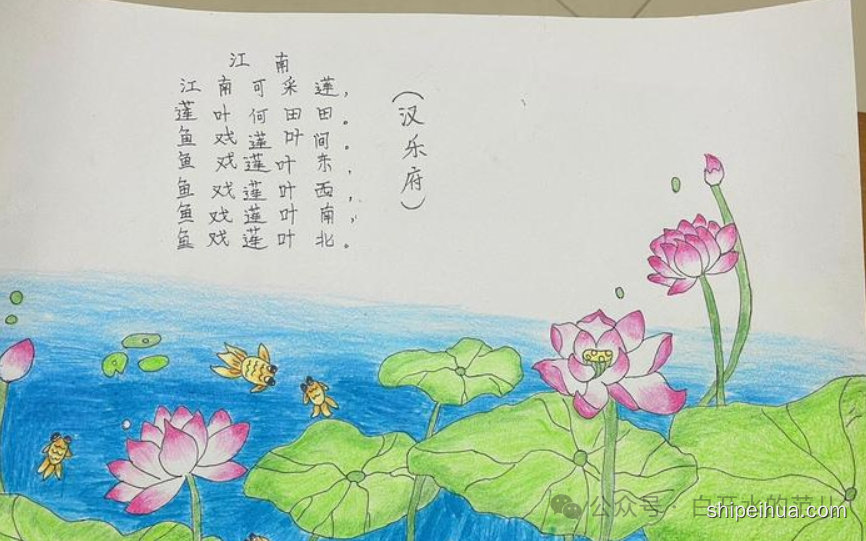 江南
江南可采莲，
莲叶何田田。
鱼戏莲叶间。
鱼戏莲叶东，
鱼戏莲叶西，
鱼戏莲叶南，
鱼戏莲叶北。
（汉乐府）
公众号·白开水的菜儿
shipeihua.com